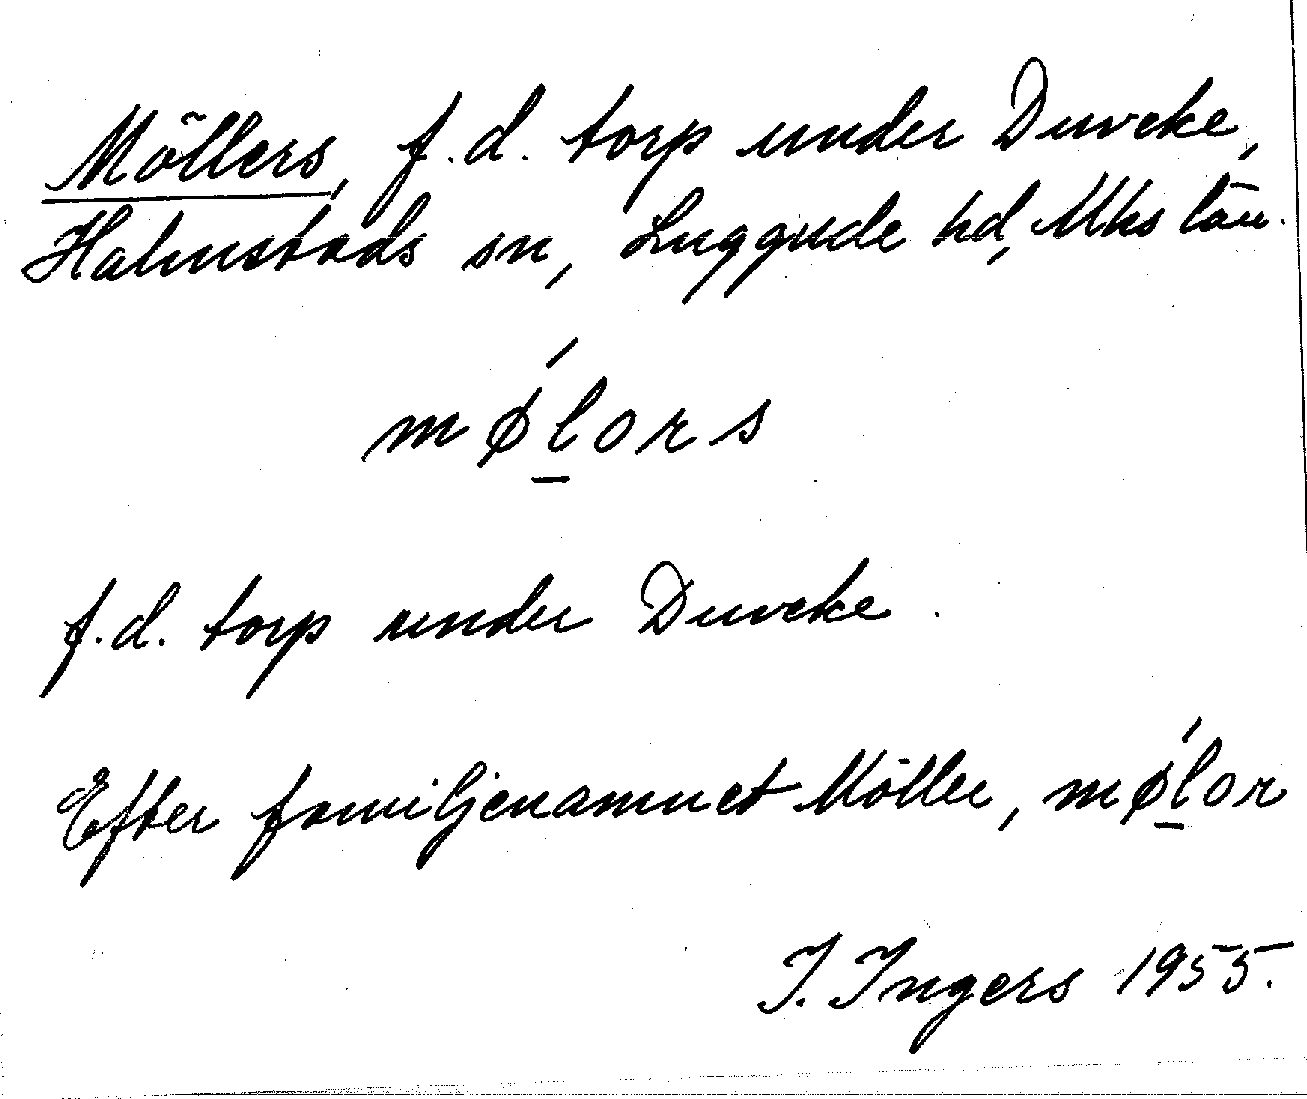 Möllers, f.d. torp under Duveke,
Halmstads sn, Luggude hd, Mhs län.
mǿl̲ors
f.d. torp under Duveke.
Efter familjenamnet Möller, mǿl̲or
I. Ingers 1955.